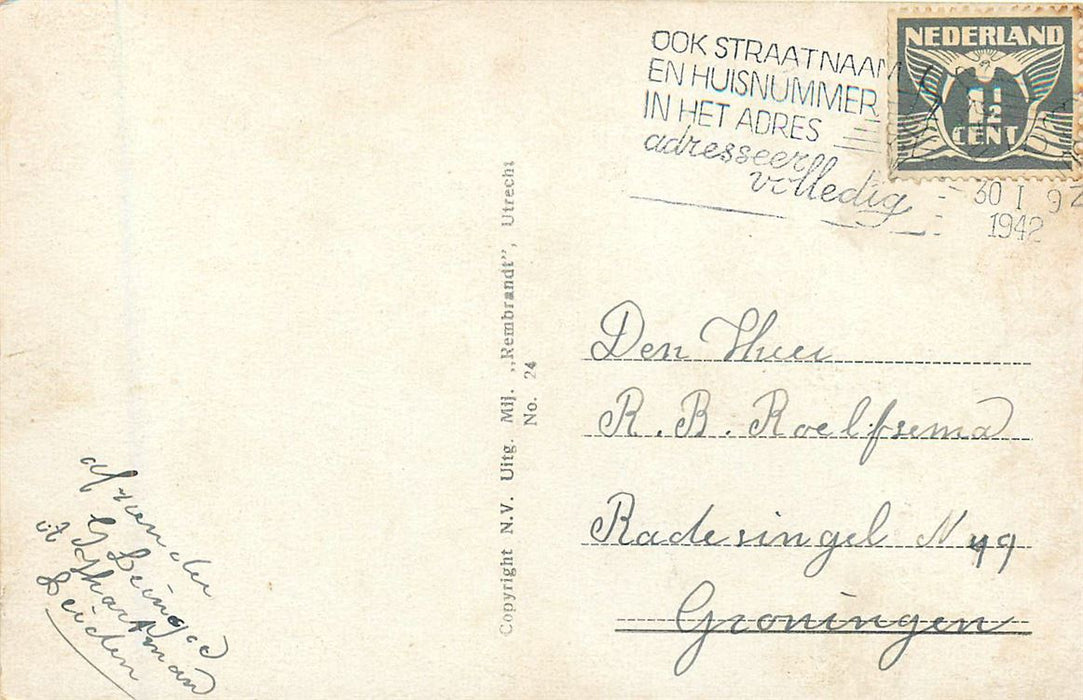 OOK STRAATNAAM
EN HUISNUMMER
IN HET ADRES
adresseer
volledig
NEDERLAND
1½
CENT
30 I 9
1942
Copyright N.V. Uitg. Mij. „Rembrandt", Utrecht
No. 24
Den Heer
R. B. Roelfsema
Radesingel N 49
Groningen
afzender
G
Leiden